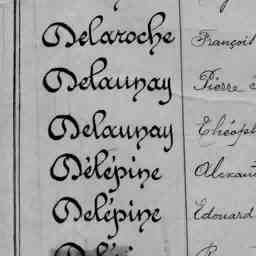 Delaroche François
Delaunay Pierre
Delaunay Théop
Délépine Alexan
Delépine Edouard